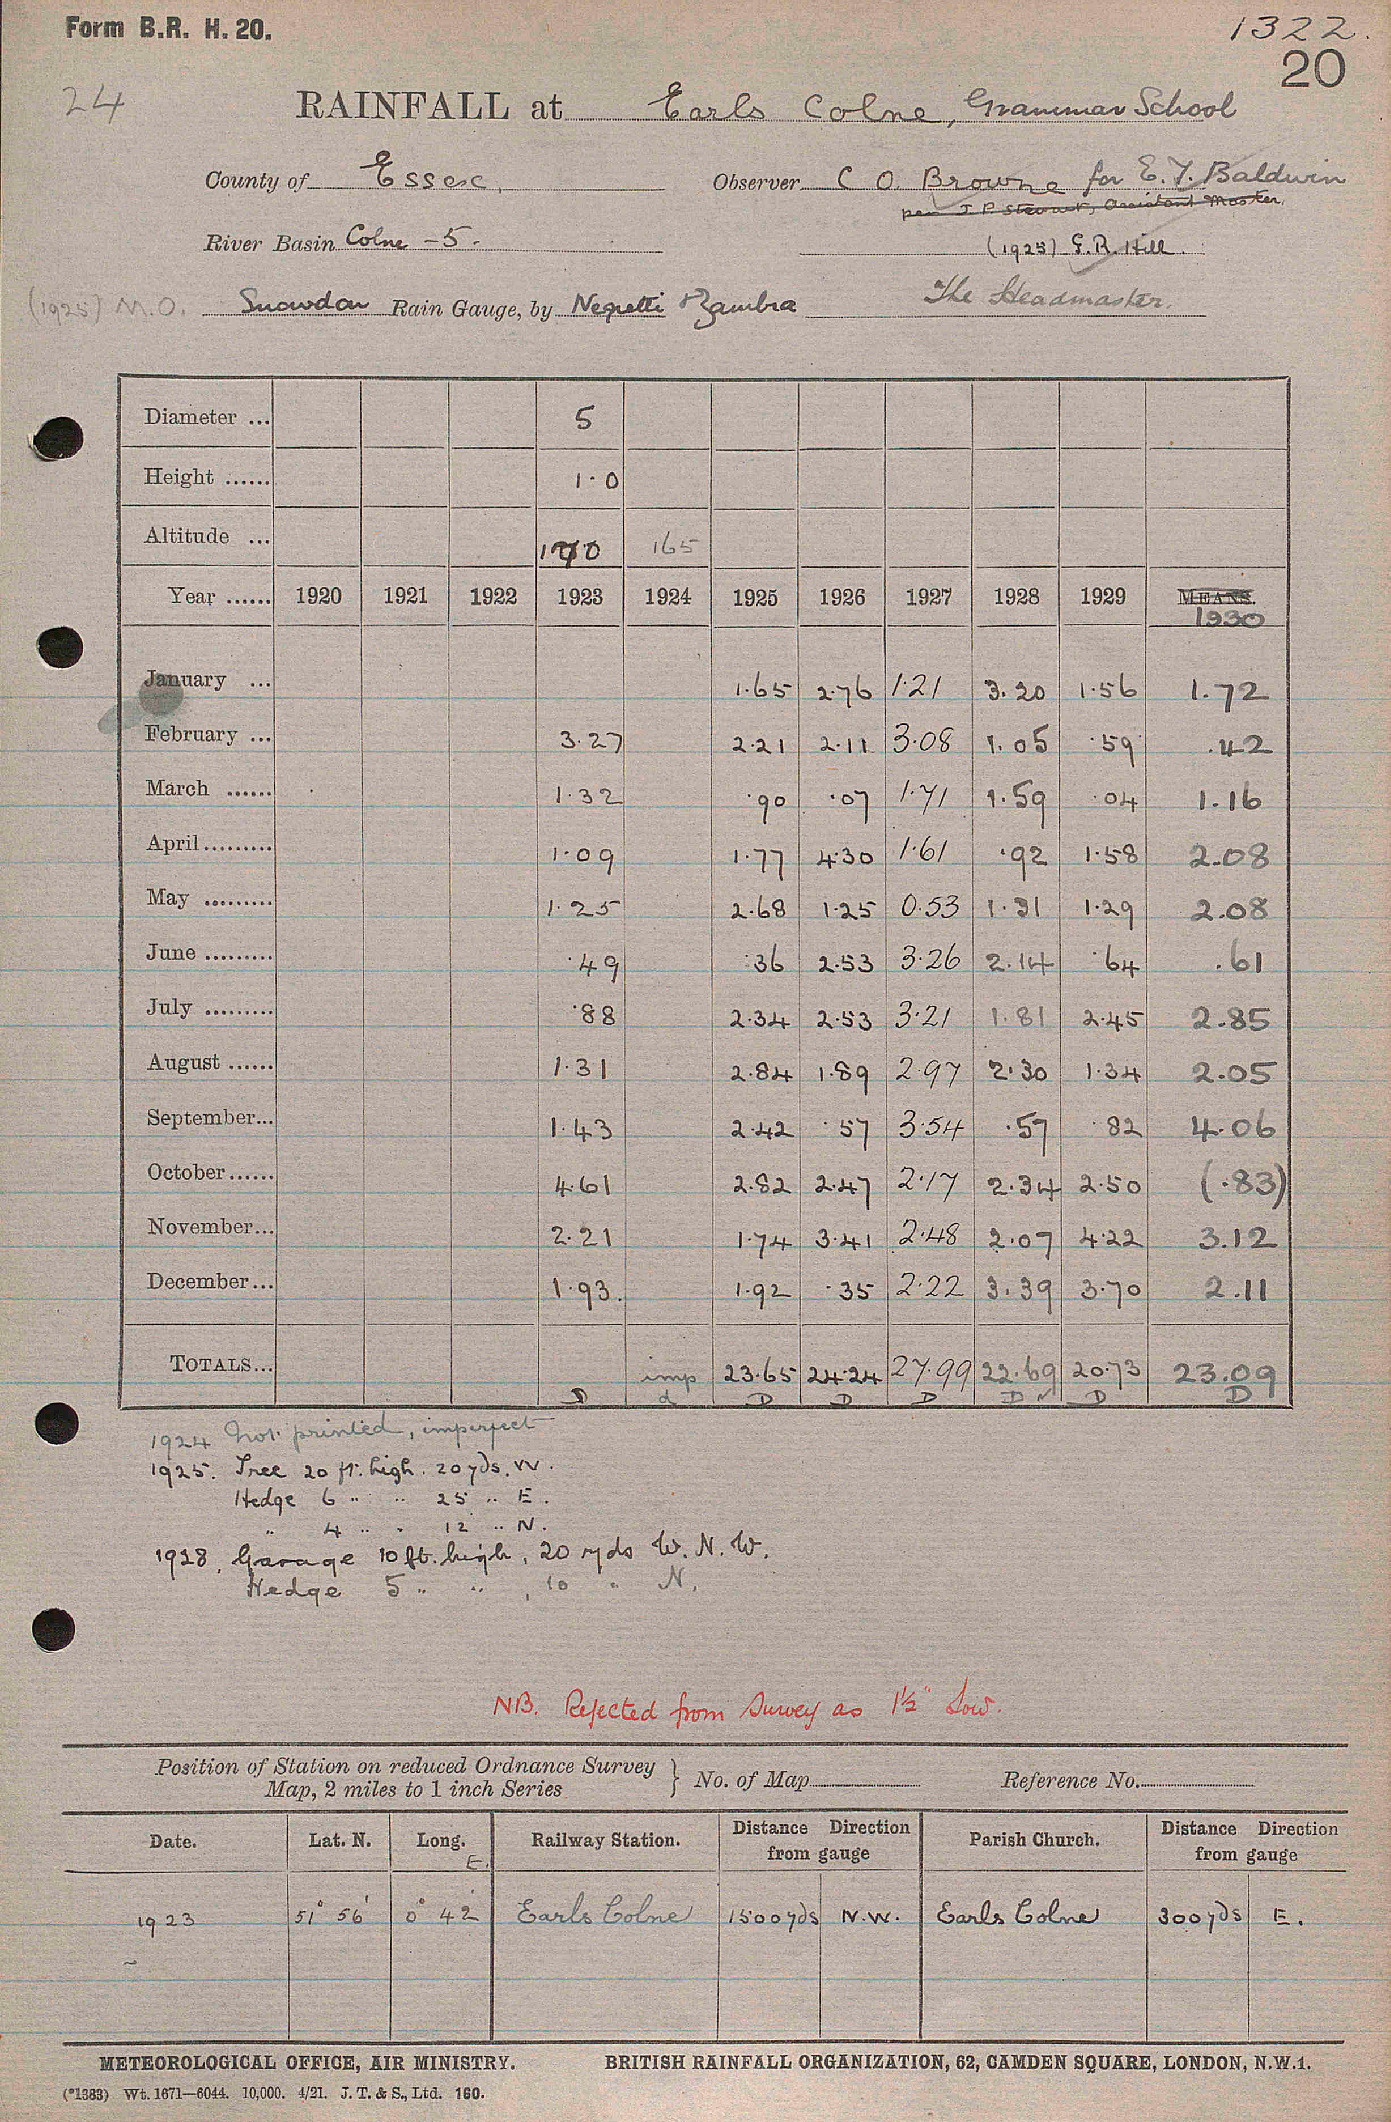 Form B.R. H. 20.
1322.
20
24
RAINFALL at Earls Colne, Grammar School
County of Essex, Observer C O. Browne for E. Y. Baldwin
per J P Stewart, Assistant Master,
River Basin Colne - 5. (1925) G. R. Hill.
(1925) M.O. Snowdon Rain Gauge, by Negretti & Zambra The Headmaster.
Diameter ... 5
Height ...... 1.0
Altitude ... 170 165
Year ...... 1920 1921 1922 1923 1924 1925 1926 1927 1928 1929 MEANS. 1930
January ... 1.65 2.76 1.21 3.20 1.56 1.72
February ... 3.27 2.21 2.11 3.08 1.05 .59 .42
March ...... 1.32 .90 .07 1.71 1.59 .04 1.16
April ......... 1.09 1.77 4.30 1.61 .92 1.58 2.08
May ......... 1.25 2.68 1.25 0.53 1.31 1.29 2.08
June ......... .49 .36 2.53 3.26 2.14 .64 .61
July ......... .88 2.34 2.53 3.21 1.81 2.45 2.85
August ...... 1.31 2.84 1.89 2.97 2.30 1.34 2.05
September... 1.43 2.42 .57 3.54 .57 .82 4.06
October ...... 4.61 2.82 2.47 2.17 2.34 2.50 (.83)
November... 2.21 1.74 3.41 2.48 2.07 4.22 3.12
December... 1.93. 1.92 .35 2.22 3.39 3.70 2.11
TOTALS... imp 23.65 24.24 27.99 22.69 20.73 23.09
D d D D D D D D
1924 Not printed, imperfect
1925. Tree 20 ft. high. 20 yds. W.
Hedge 6 " " 25 " E.
" 4 " " 12 " N.
1928, Garage 10 ft. high, 20 yds W. N. W.
Hedge 5 " " , 10 " N.
NB. Rejected from Survey as 1½" low.
Position of Station on reduced Ordnance Survey
Map, 2 miles to 1 inch Series } No. of Map Reference No.
Date. Lat. N. Long. E. Railway Station. Distance Direction from gauge Parish Church. Distance Direction from gauge
1923 51° 56' 0° 42' Earls Colne 1500 yds N.W. Earls Colne 300 yds E.
METEOROLOGICAL OFFICE, AIR MINISTRY. BRITISH RAINFALL ORGANIZATION, 62, CAMDEN SQUARE, LONDON, N.W.1.
(*1383) Wt. 1671—6044. 10,000. 4/21. J. T. & S., Ltd. 160.